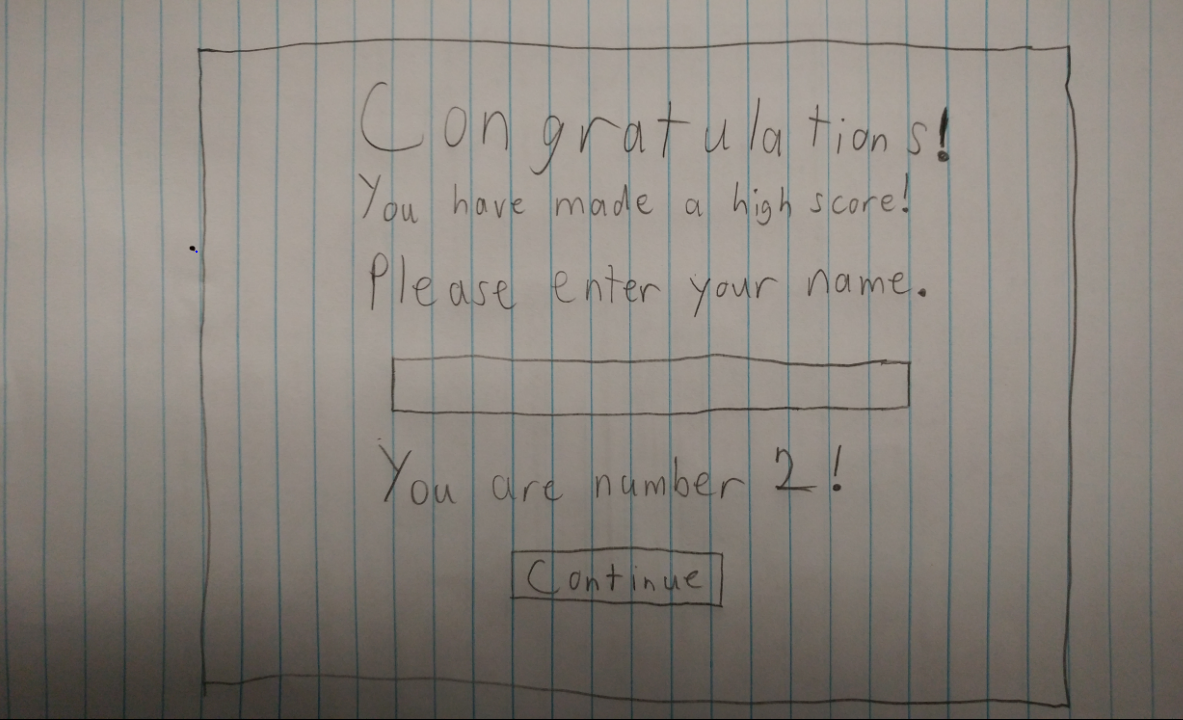 Congratulations!
You have made a high score!
Please enter your name.
You are number 2!
Continue